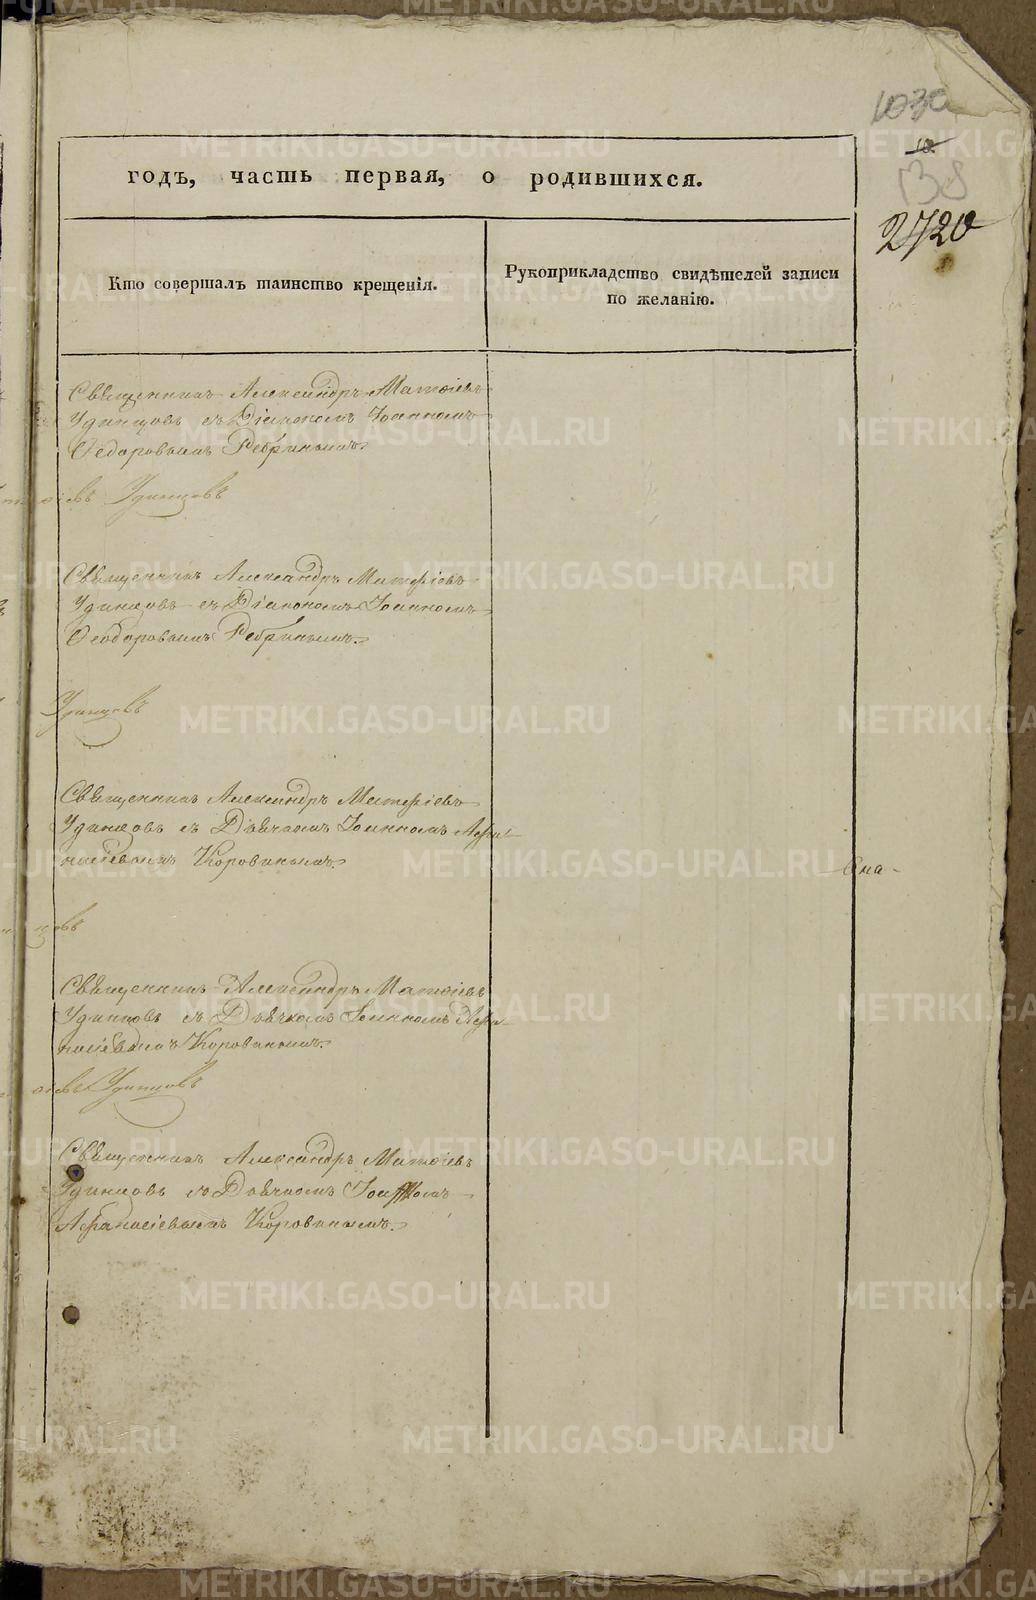 годъ, часть первая, о родившихся.
2720
Кто совершалъ таинство крещенія.
Рукоприкладство свидѣтелей записи
по желанію.
Священникъ Александръ Матѳіевъ
Удинцовъ съ Діакономъ Іоанномъ
Ѳедоровымъ Ребринымъ.
Удинцовъ
Священникъ Александръ Матѳіевъ
Удинцовъ съ Діакономъ Іоанномъ
Ѳеодоровымъ Ребринымъ.
Удинцовъ
Священникъ Александръ Матѳіевъ
Удинцовъ съ Дьячкомъ Іоанномъ Афа-
насіевымъ Коровинымъ.
Священникъ Александръ Матѳіевъ
Удинцовъ съ Дьячкомъ Іоанномъ Афа-
насіевымъ Коровинымъ.
Удинцовъ
Священникъ Александръ Матѳіевъ
Удинцовъ съ Дьячкомъ Іоанномъ
Афанасіевымъ Коровинымъ.
METRIKI.GASO-URAL.RU